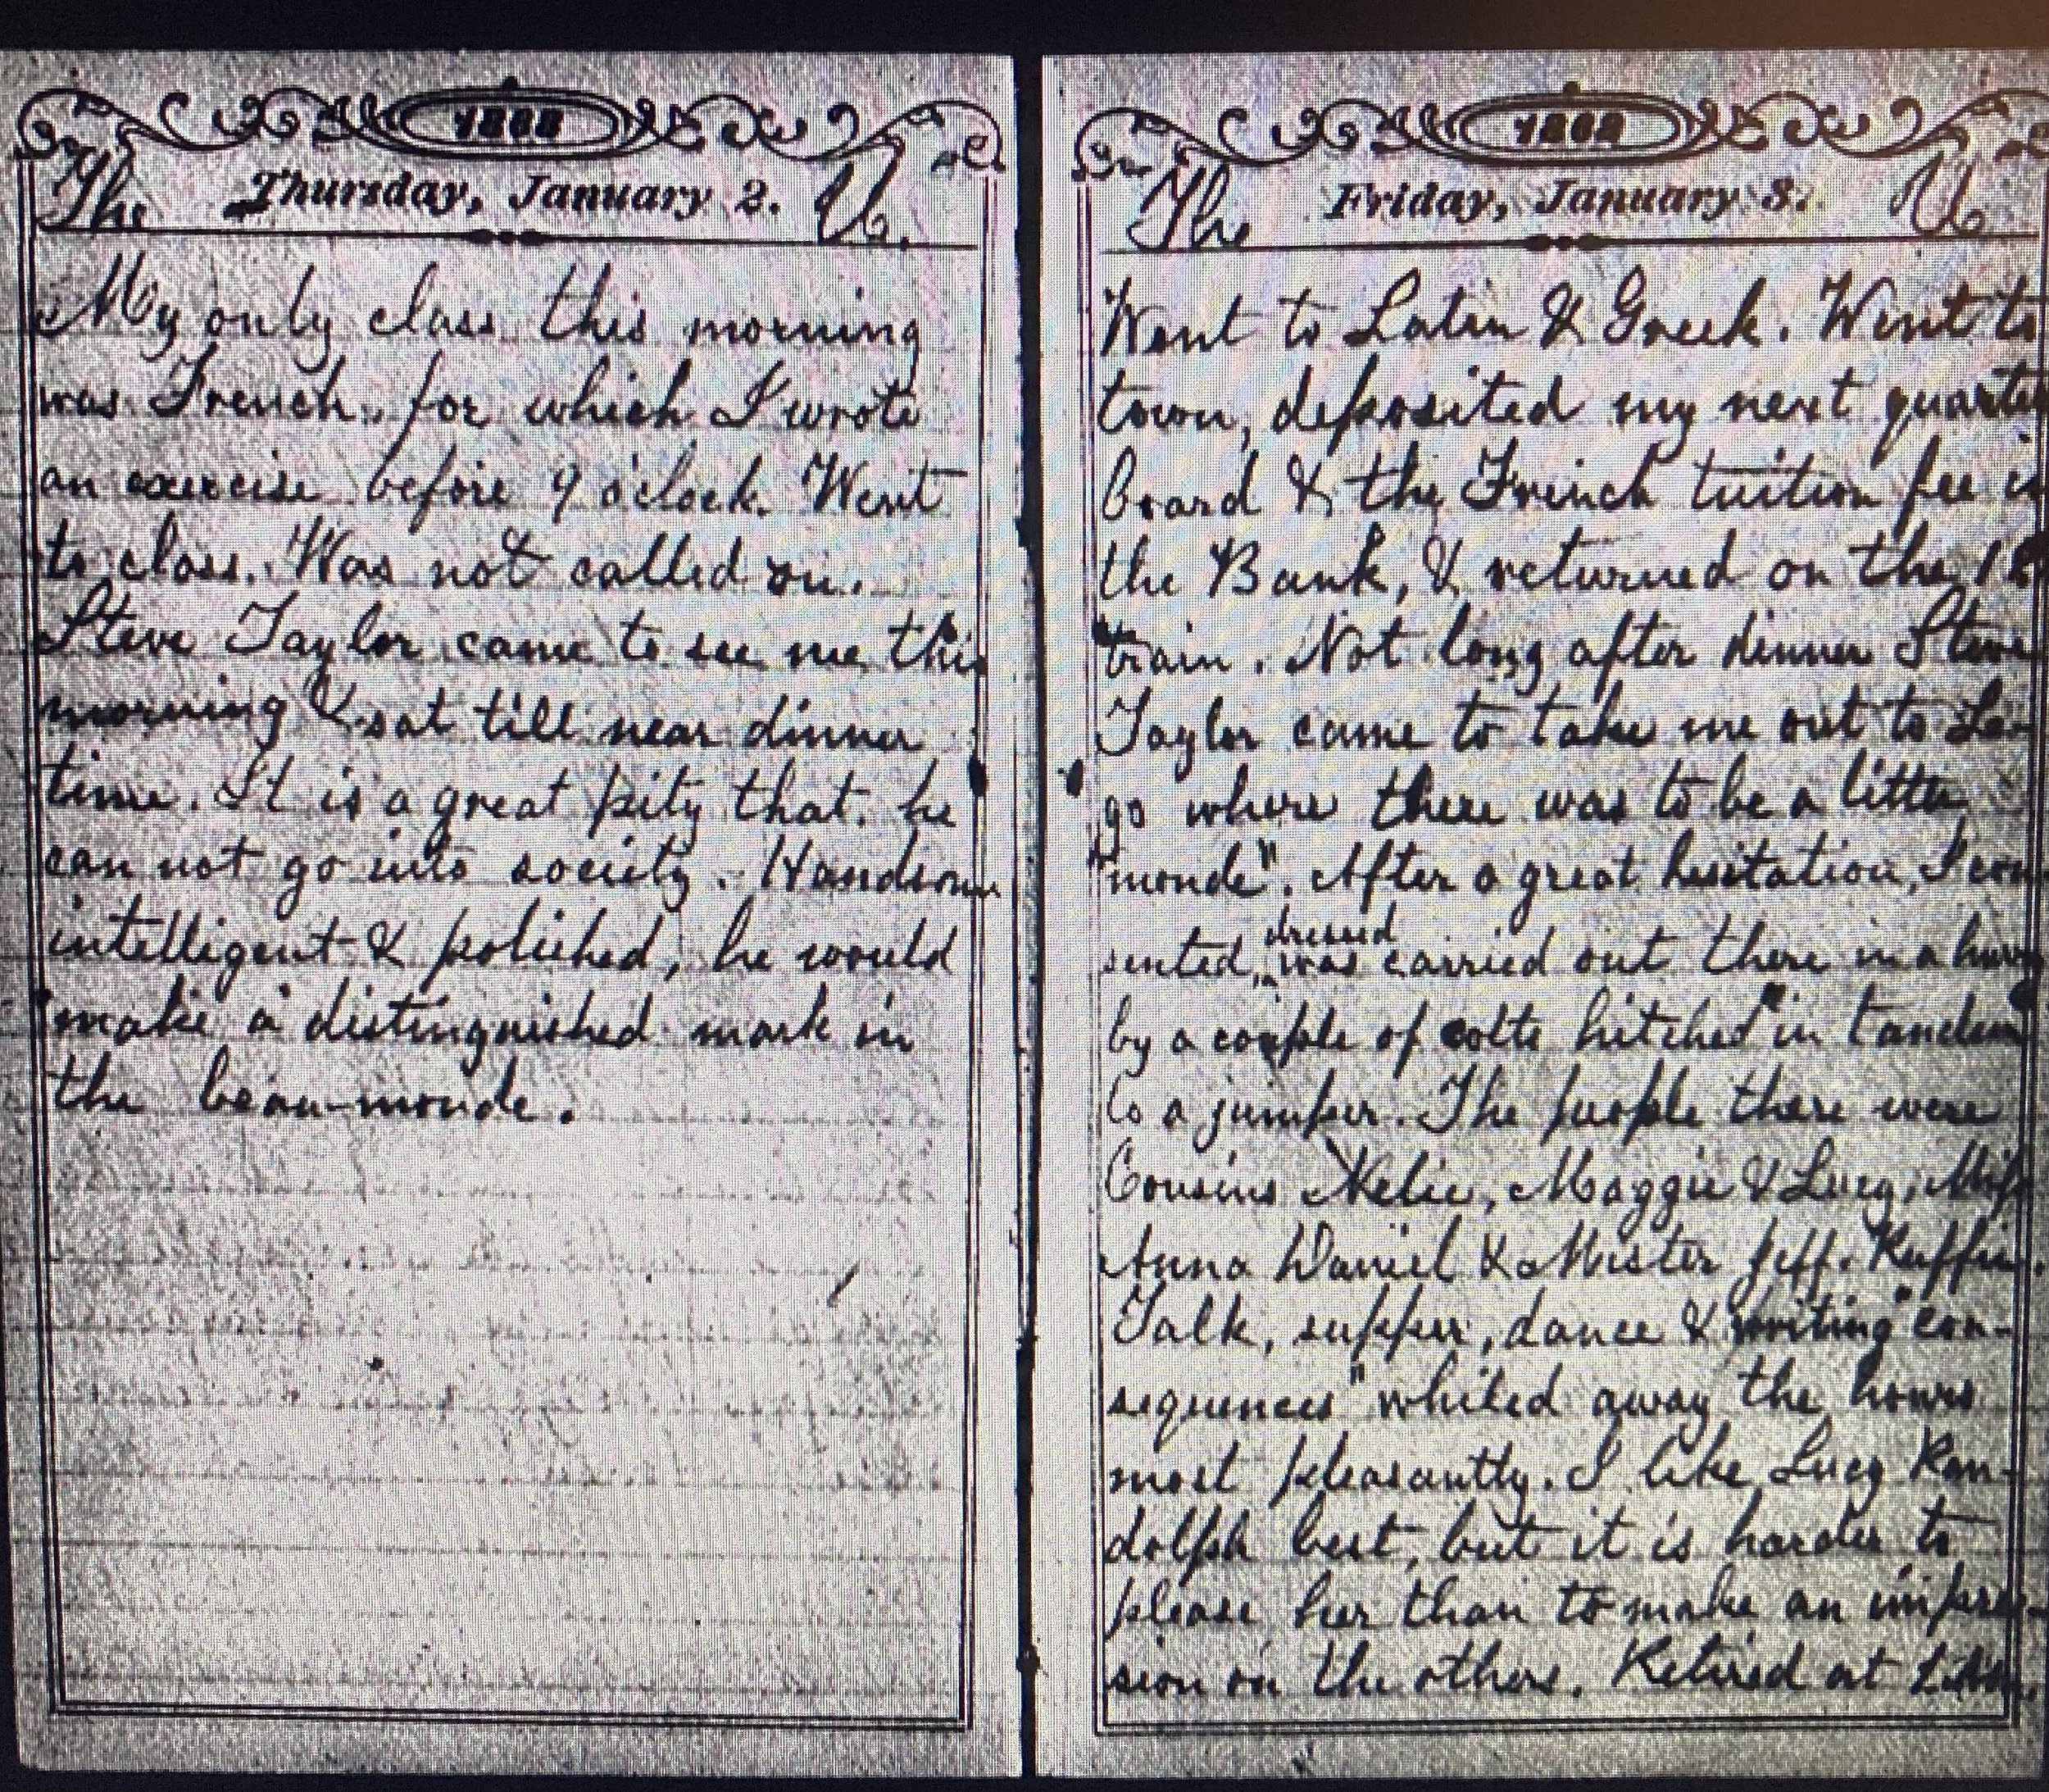 1868
The Thursday, January 2. U.
My only class this morning
was French, for which I wrote
an exercise before 9 o'clock. Went
to class. Was not called on.
Steve Taylor came to see me this
morning & sat till near dinner
time. It is a great pity that he
can not go into society. Handsome
intelligent & polished, he would
make a distinguished mark in
the beau-monde.
1868
The Friday, January 3. U
Went to Latin & Greek. Went to
town, deposited my next quarter
board & the French tuition fee in
the Bank, & returned on the
train. Not long after dinner Steve
Taylor came to take me out to Le-
go where there was to be a little
"monde". After a great hesitation, I con
dressed
sented, was carried out there in a hurry
by a couple of colts hitched "in tandem"
to a jumper. The people there were
Cousins Nelie, Maggie & Lucy, Miss
Anna Daniel & Mister Jeff. Ruffin.
Talk, supper, dance & "writing con-
sequences" whiled away the hours
most pleasantly. I like Lucy Ran-
dolph best, but it is harder to
please her than to make an impres-
sion on the others. Retired at